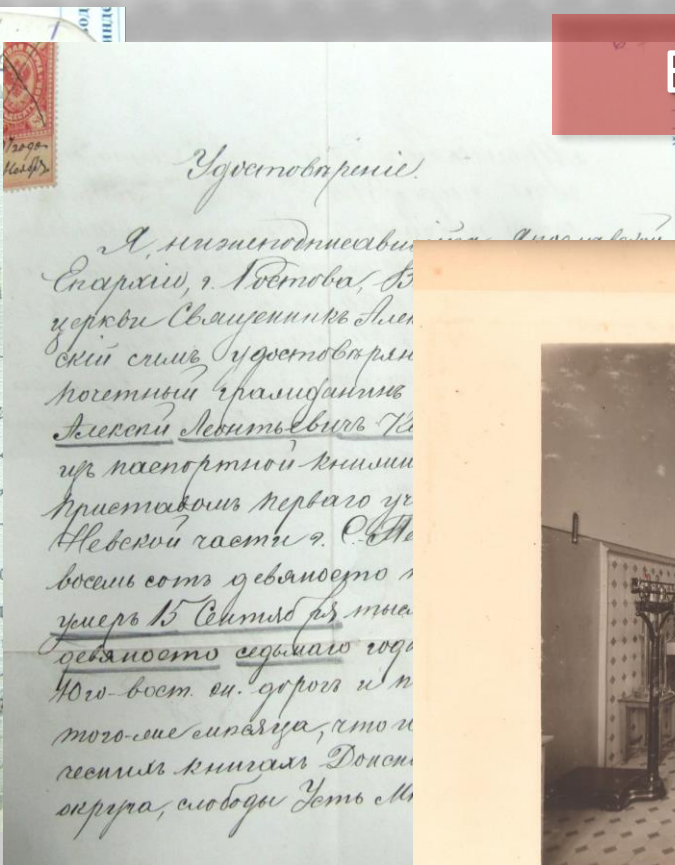 Удостовѣреніе.
Я, нижеподписавш
Епархіи, г. Ростова, В
церкви Священникъ Алек
скій симъ удостовѣрян
почетный гражданинъ
Алексѣй Леонтьевичъ К
изъ паспортной книжки
приставомъ перваго уч
Невской части г. С.-Пе
восемь сотъ девяносто
умеръ 15 Сентября тыс
девяносто седьмаго года
Юго-вост. ж. дорогъ и п
того-же мѣсяца, что и
ческихъ книгахъ Донск
округа, слободы Усть М